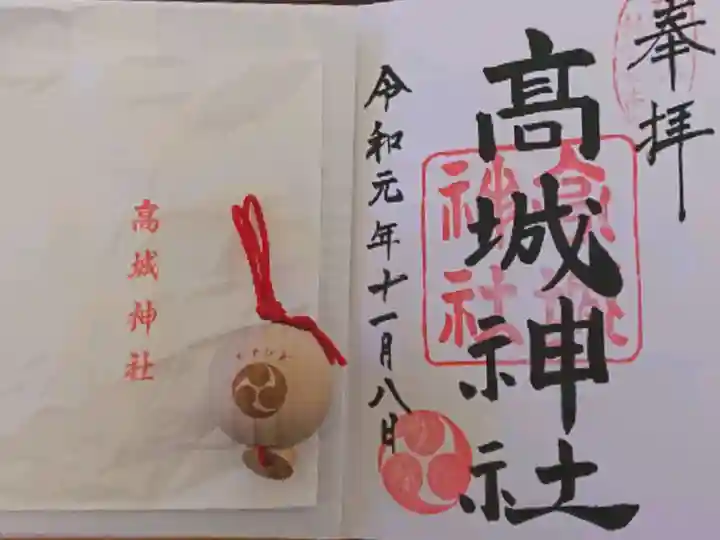 奉拝
髙城神社
高城神社
令和元年十一月八日
高城神社